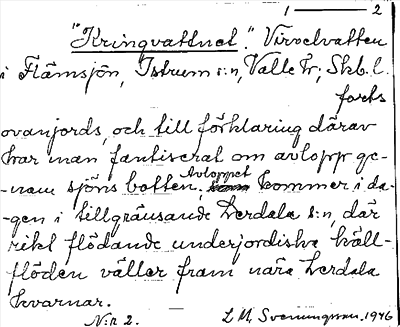 1 — 2
"Kringvattnet." Virvelvatten
i Flämsjön, Istrum s:n, Valle hr; Skb. l.
forts
ovanjords, och till förklaring därav
har man fantiserat om avlopp ge-
-nom sjöns botten. Avloppet kommer i da-
-gen i tillgränsande Lerdala s:n, där
rikt flödande underjordiska käll-
-flöden väller fram nära Lerdala
kvarnar.
N:r 2. L. M. Svenungsson, 1946